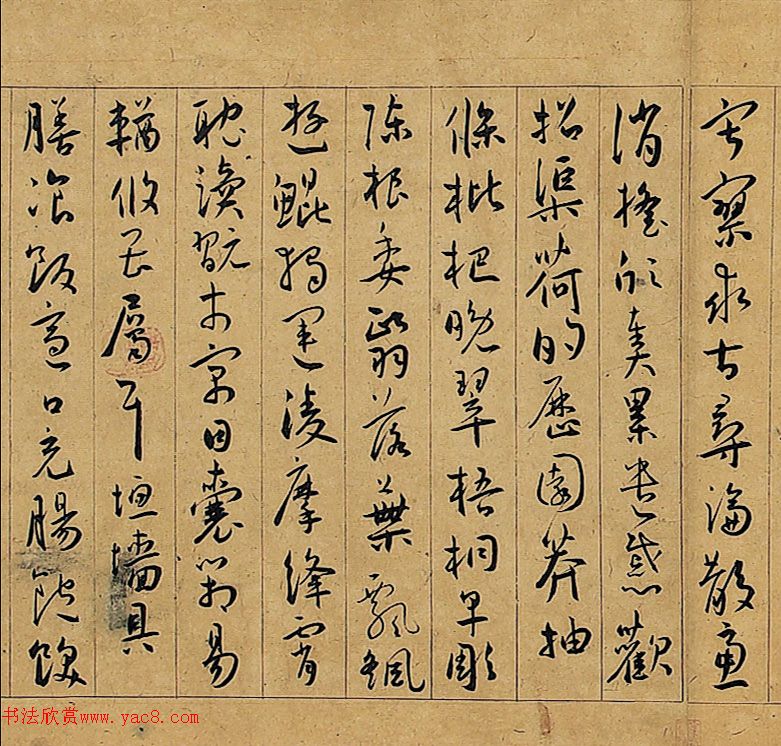 寂寥求古尋論散慮
逍遙欣奏累遣慼歡
招渠荷的歷園莽抽
條枇杷晚翠梧桐早彫
陳根委翳落葉飄颻
遊鯤獨運淩摩絳霄
耽讀翫市寓目囊箱易
輶攸畏屬耳垣墻具
膳飡飯適口充腸飽飫
书法欣赏www.yac8.com